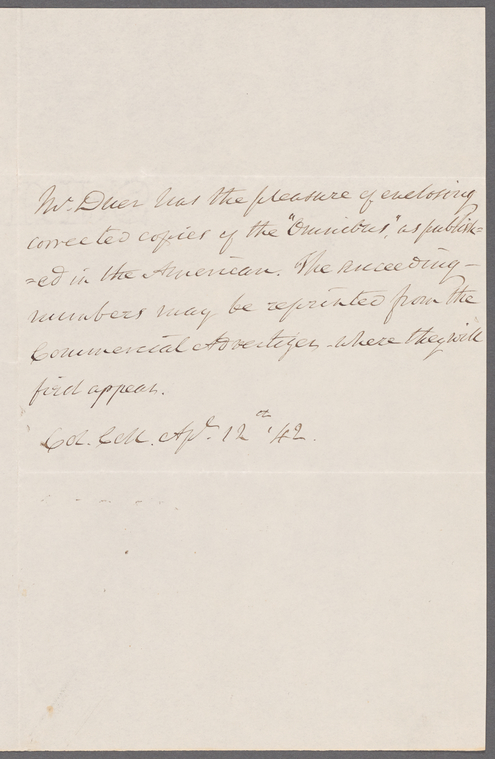 Mr. Duer has the pleasure of enclosing
corrected copies of the "Omnibus", as publish=
=ed in the American. The succeeding -
numbers may be reprinted from the
Commercial Advertizer - where they will
first appear.
Col. Coll. Apl. 12th '42.